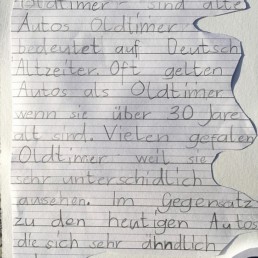 Oldtimer sind alte
Autos Oldtimer
bedeutet auf Deutsch
Altzeiter. Oft gelten
Autos als Oldtimer
wenn sie über 30 Jare
alt sind. Vielen gefalen
Oldtimer weil sie
sehr unterschidlich
aussehen. Im Gegensatz
zu den heutigen Autos
die sich sehr ähnlich